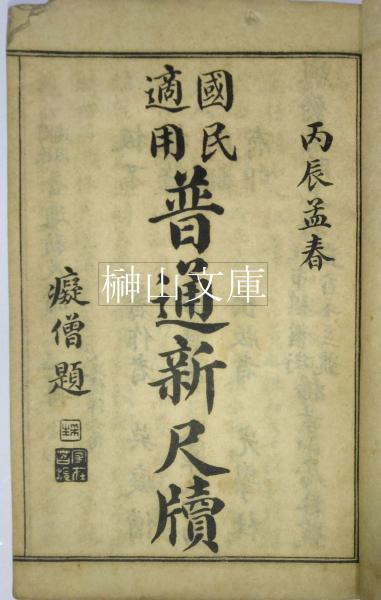 丙辰孟春
國民
適用
普通新尺牘
癡僧題
榊山文庫